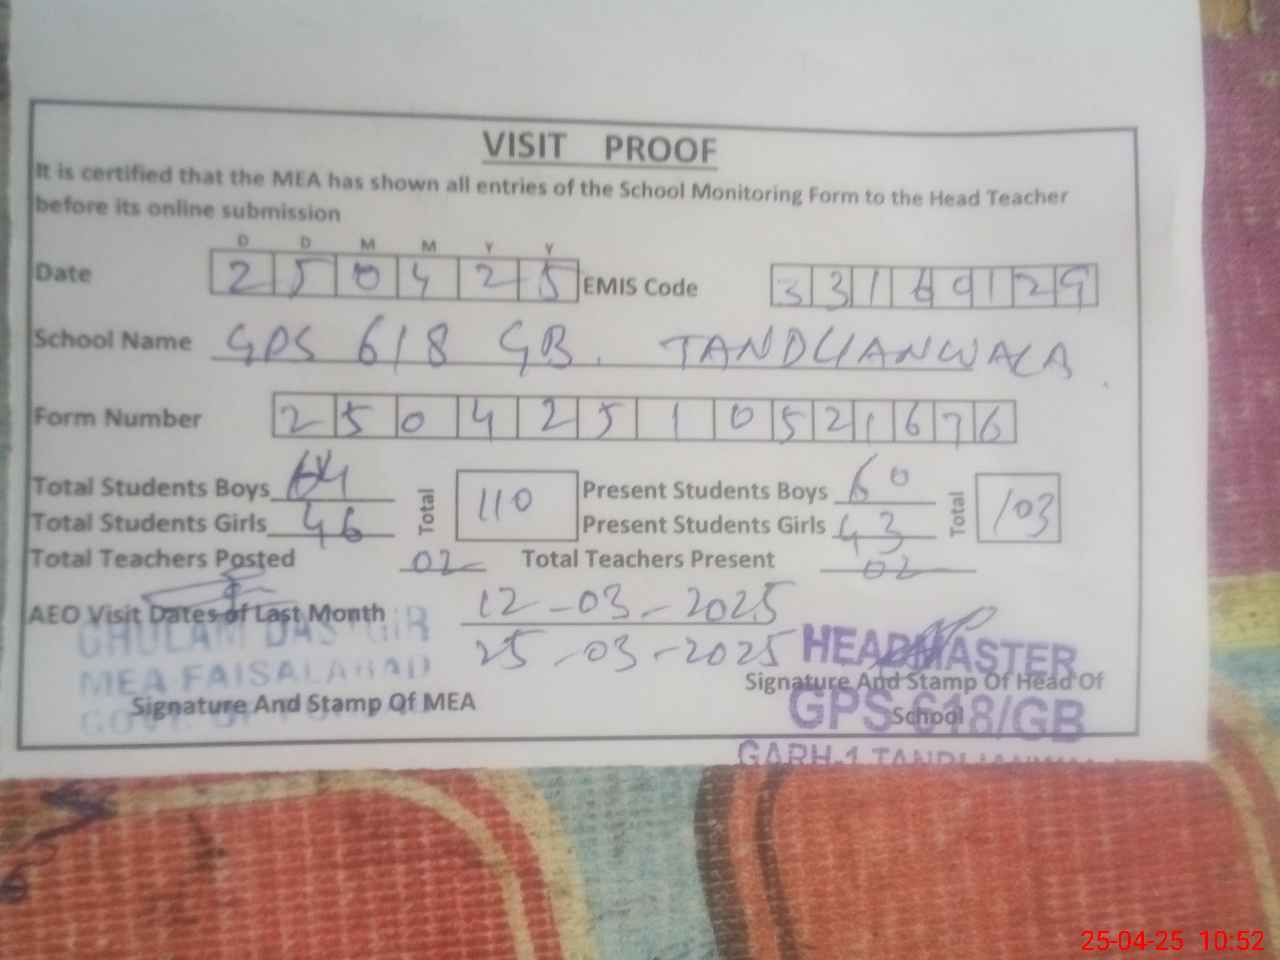 VISIT PROOF
It is certified that the MEA has shown all entries of the School Monitoring Form to the Head Teacher
before its online submission
D D M M Y Y
Date 2 5 0 4 2 5 EMIS Code 3 3 1 6 9 1 2 9
School Name GPS 618 GB. TANDLIANWALA
Form Number 2 5 0 4 2 5 1 0 5 2 1 6 7 6
Total Students Boys 64 Total 110 Present Students Boys 60 Total 103
Total Students Girls 46 Present Students Girls 43
Total Teachers Posted 02 Total Teachers Present 02
AEO Visit Dates of Last Month 12-03-2025
25-03-2025
GHULAM DASTGIR
MEA FAISALABAD
Signature And Stamp Of MEA
HEADMASTER
Signature And Stamp Of Head Of
School
GPS 618/GB
GARH-1 TANDLIANWALA
25-04-25 10:52